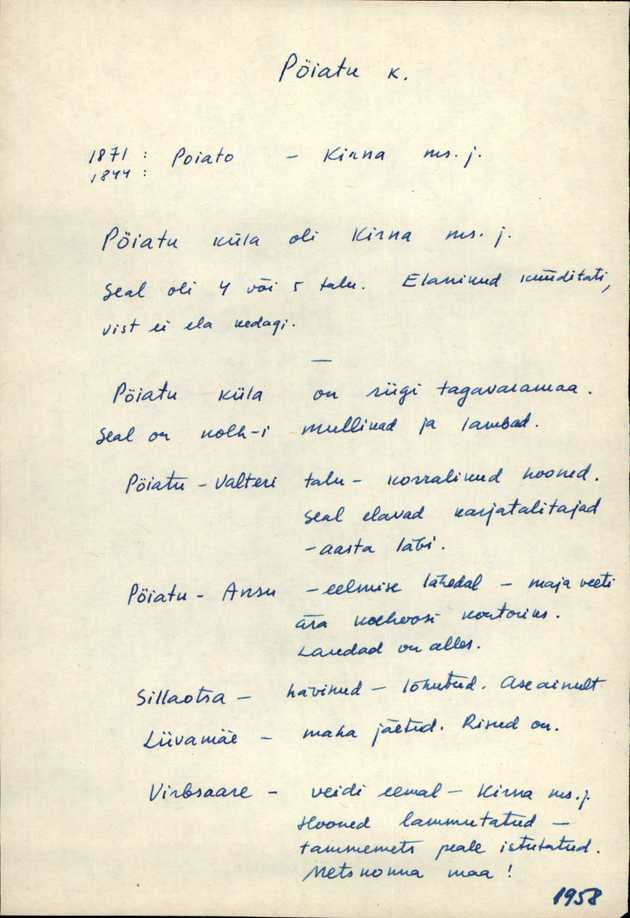 Pöiatu k.
1871 : Poiato - Kirna ms. j.
1844 :
Pöiatu küla oli Kirna ms. j.
Seal oli 4 või 5 talu. Elanikud küüditati,
vist ei ela kedagi.
—
Pöiatu küla on riigi tagavaramaa.
Seal on kolh-i mullikad ja lambad.
Pöiatu - Valteri talu - korralikud hooned.
Seal elavad karjatalitajad
- aasta läbi.
Pöiatu - Ansu - eelmise lähedal - maja veeti
ära kolhoosi kontoriks.
Laudad on alles.
Sillaotsa - hävinud - lõhutud. Ase ainult
Liivamäe - maha jäetud. Risud on.
Virbsaare - veidi eemal - Kirna ms. j.
Hooned lammutatud -
tammemets peale istutatud.
Metskonna maa !
1958